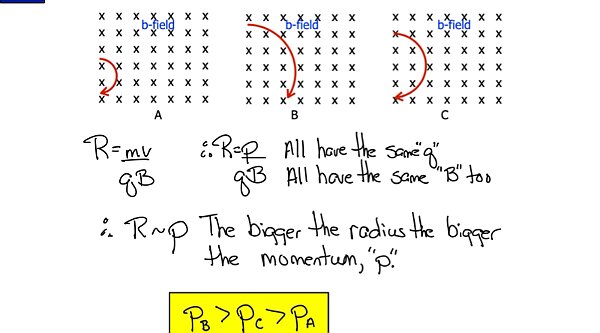 b-field b-field b-field
A B C
R=mv/qB ∴ R=p/qB All have the same "q"
All have the same "B" too
∴ R~p The bigger the radius the bigger
the momentum, "p".
P_B > P_C > P_A